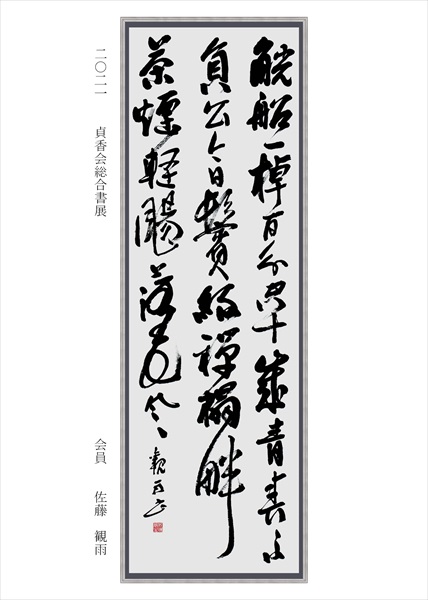 觥船一棹百分空十歳青春不
負公今日鬢絲禅榻畔
茶煙軽颺落花風 観雨
二〇二一 貞香会総合書展
会員 佐藤 観雨